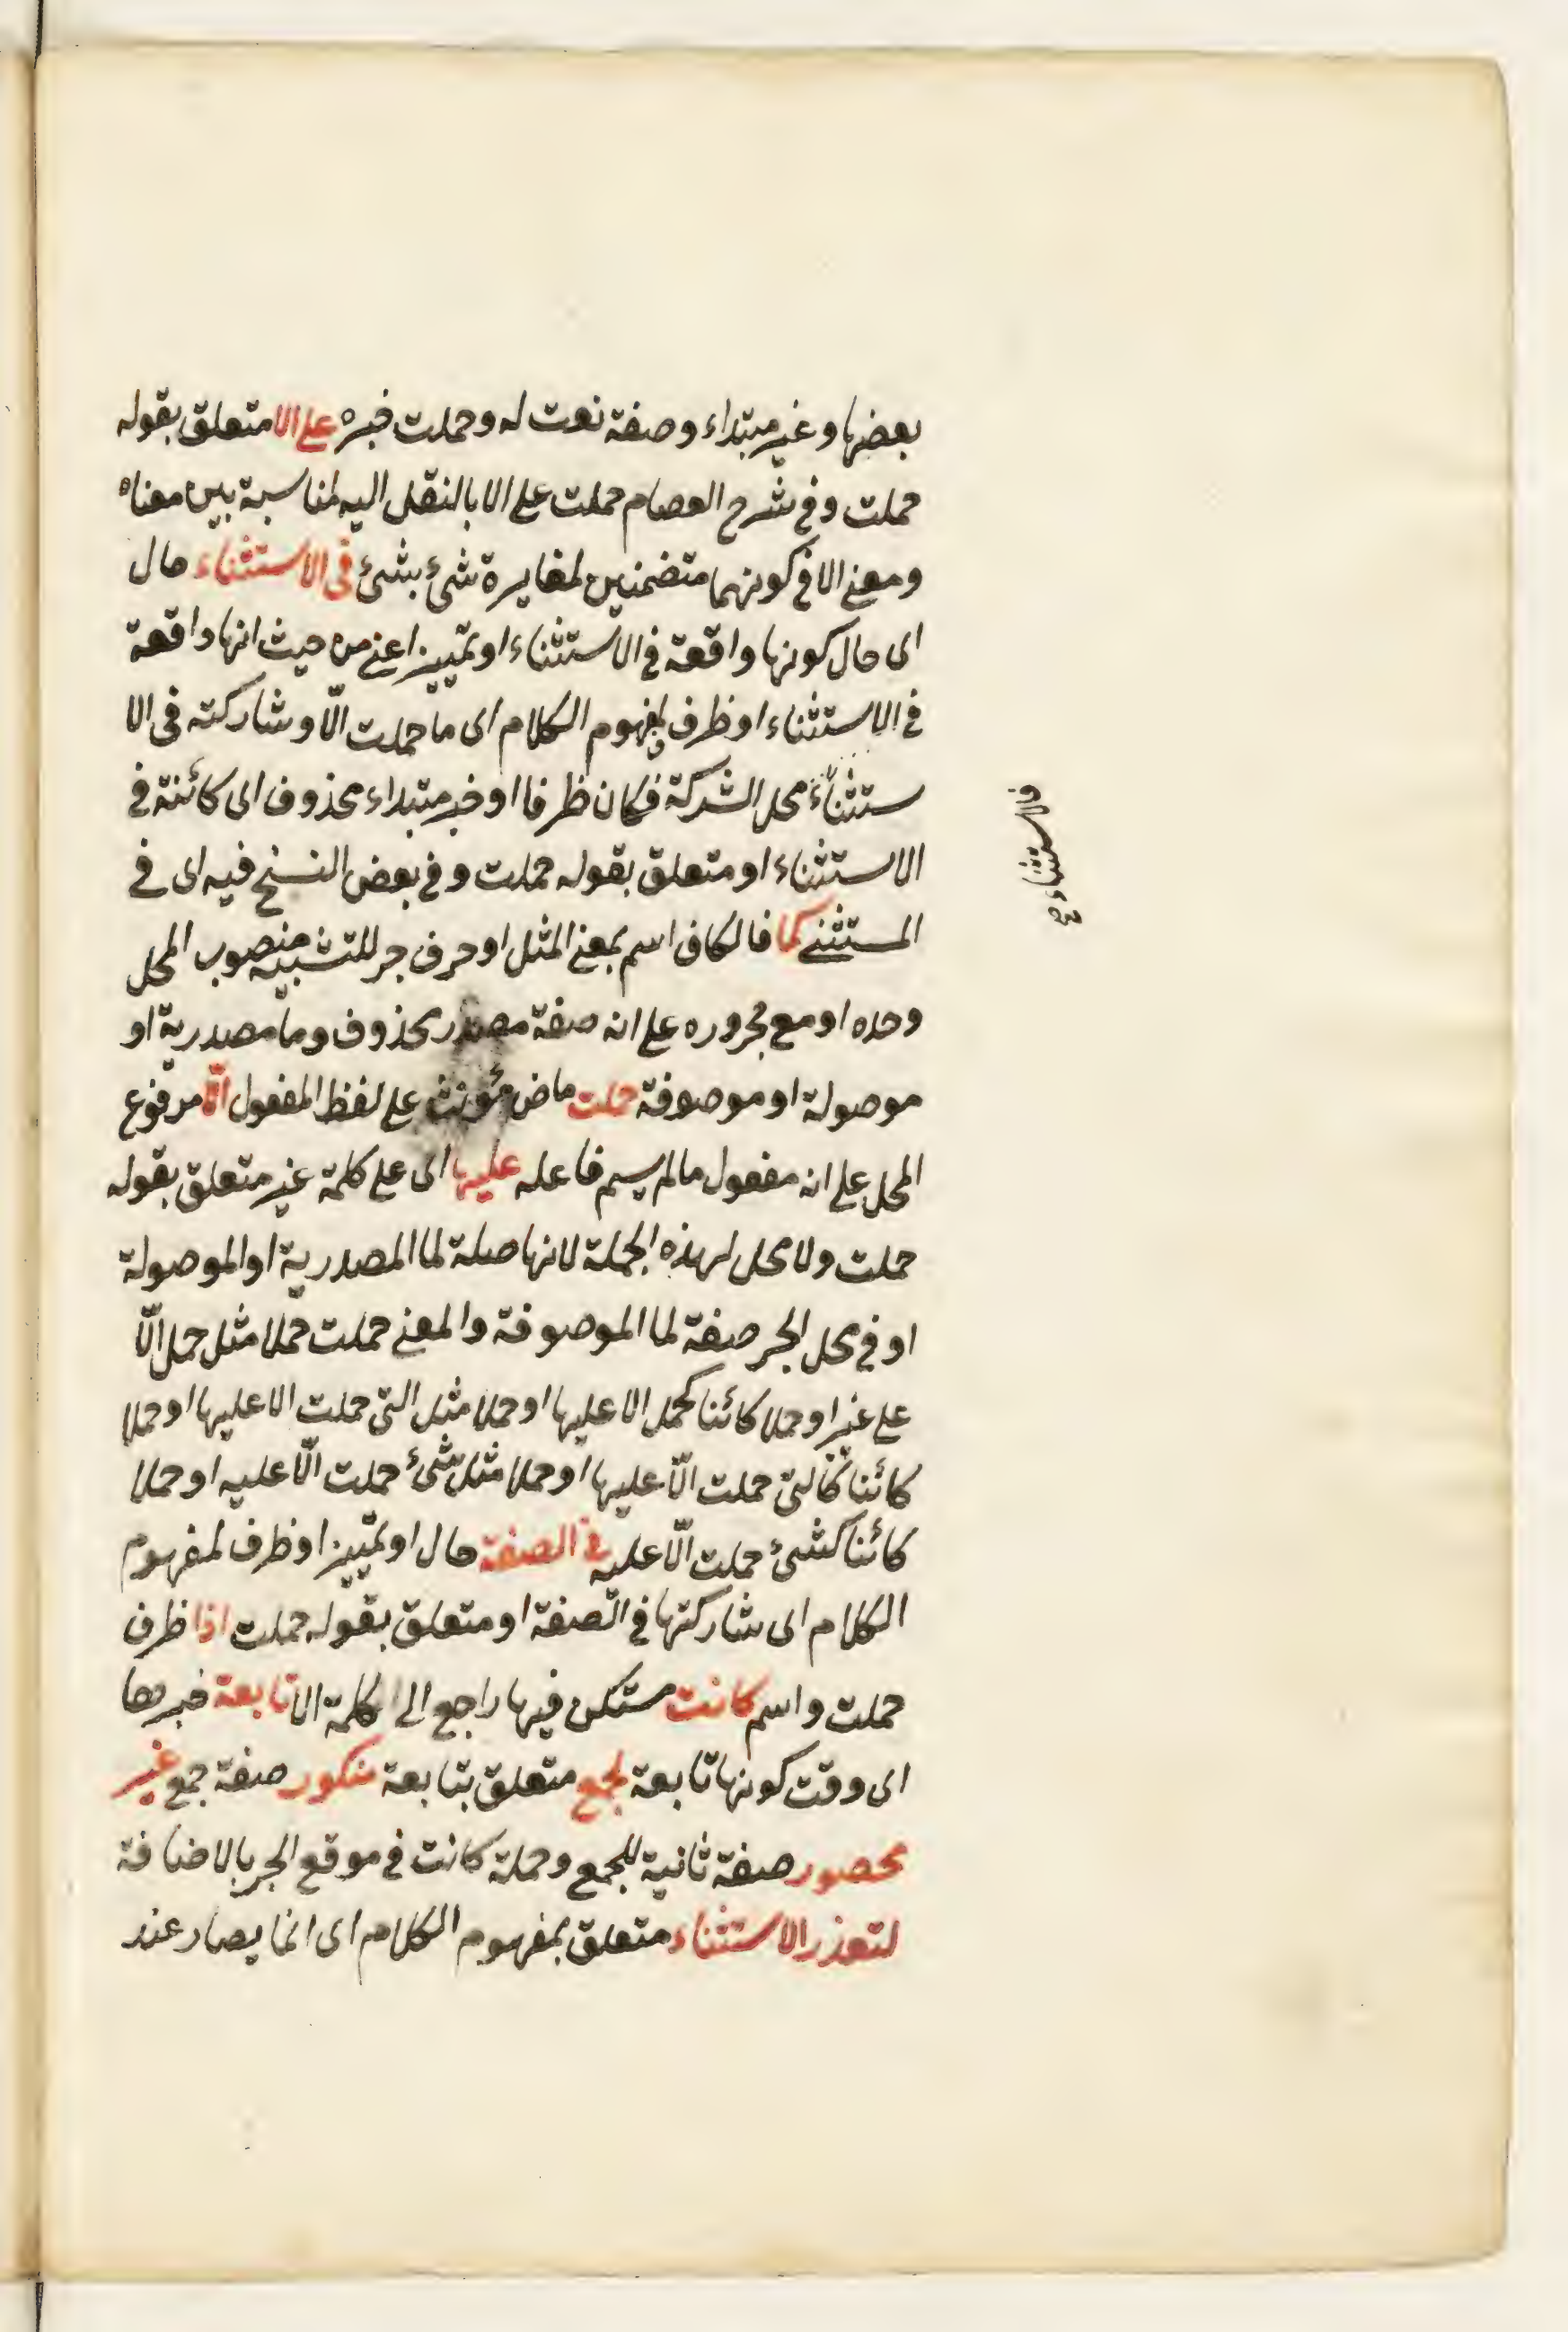 بعضها وغير مبتداء وصفة نعت له وحملت خبره على الا متعلق بقوله
حملت وفي شرح العصام حملت على الا بالنقل اليه لمناسبة بين معناه
ومعنى الا في كونهما متضمنين لمغايرة شئ بشئ فى الاستثناء حال
اى حال كونها واقعة في الاستثناء او تمييز اعنى من حيث انها واقعة
في الاستثناء او ظرف لمفهوم الكلام اى ما حملت الّا وشاركته فى الا
ستثناء محل الشركة فكان ظرفا او خبر مبتداء محذوف اى كائنة في
الاستثناء او متعلق بقوله حملت وفي بعض النسخ فيه اى في
المستثنى كما فالكاف اسم بمعنى المثل او حرف جر للتشبيه منصوب المحل
وحده او مع مجروره على انه صفة مصدر محذوف وما مصدرية او
موصولة او موصوفة حملت ماض مؤنث على لفظ المفعول الّا مرفوع
المحل على انه مفعول مالم يسم فاعله عليها اى على كلمة غير متعلق بقوله
حملت ولا محل لهذه الجملة لانها صلة لما المصدرية او الموصولة
او في محل الجر صفة لما الموصوفة والمعنى حملت حملا مثل حمل الّا
على غير او حملا كائنا كحمل الا عليها او حملا مثل التى حملت الا عليها او حملا
كائنا كالتى حملت الّا عليها او حملا مثل شئ حملت الّا عليه او حملا
كائنا كشئ حملت الّا عليه في الصفة حال او تمييز او ظرف لمفهوم
الكلام اى شاركتها في الصفة او متعلق بقوله حملت اذا ظرف
حملت واسم كانت مستكن فيها راجع الى كلمة الا تابعة خبرها
اى وقت كونها تابعة لجمع متعلق بتابعة منكور صفة جمع غير
محصور صفة ثانية للجمع وجملة كانت في موقع الجر بالاضافة
لتعذر الاستثناء متعلق بمفهوم الكلام اى انما يصار عند
في الاستثناء صح